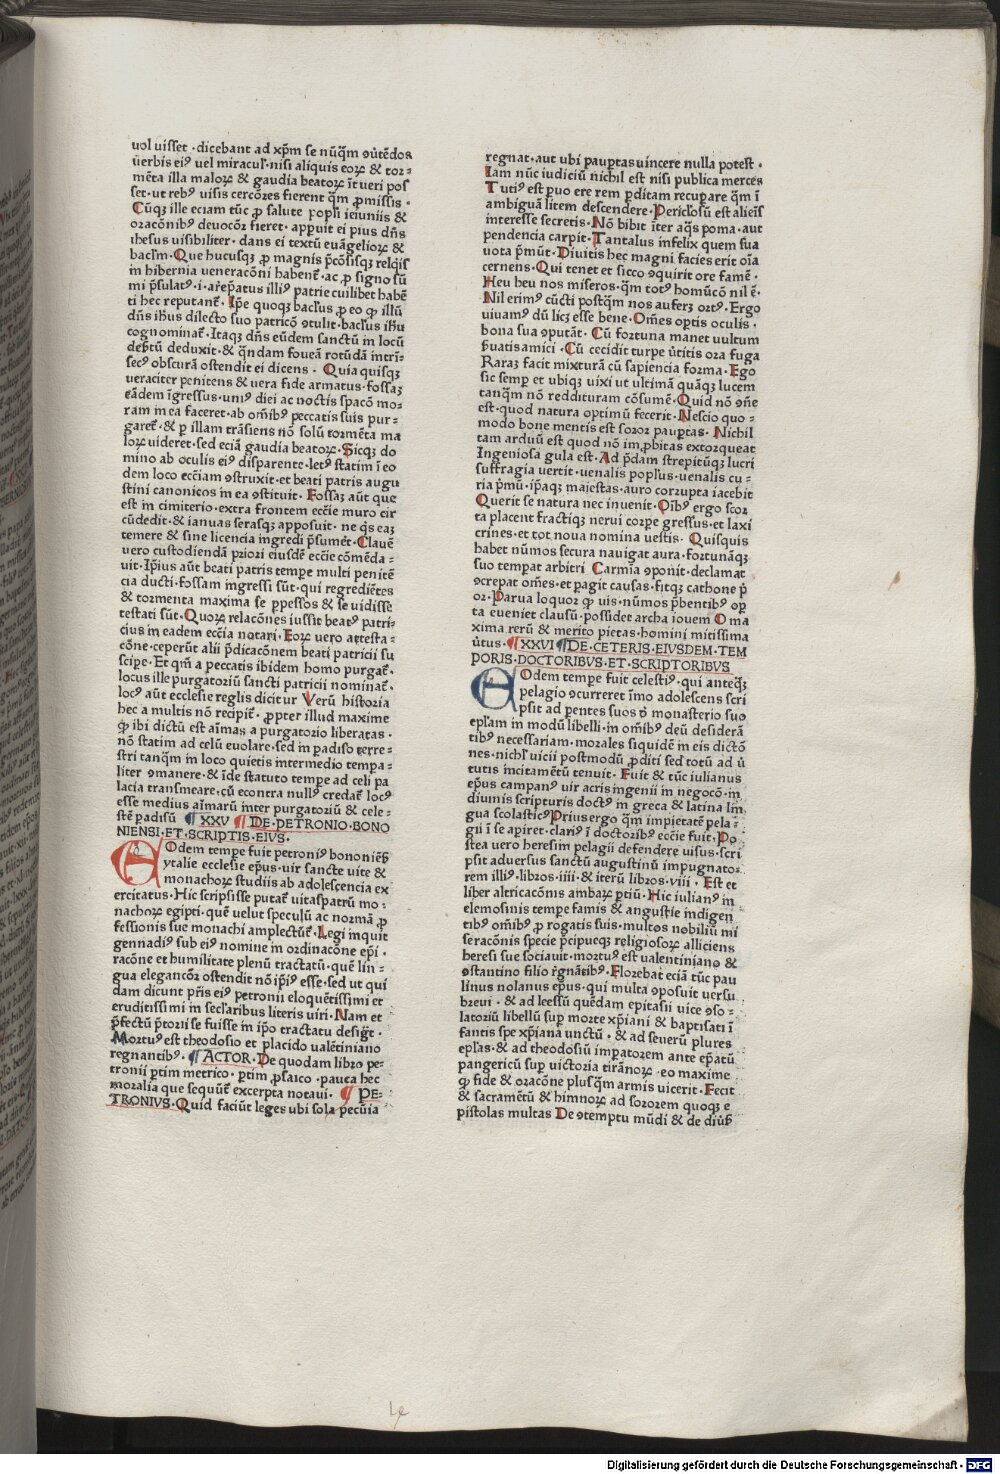 uol uisset · dicebant ad xp̄m se nūq̄m ꝯūtēdos
uerbis eiꝰ uel miracul̕·nisi aliquis eoꝝ & tor⸗
mēta illa maloꝝ & gaudia beatoꝝ īt ueri pos
set·ut rebꝰ uisis cercōres fierent q̄m ꝓmissis ·
Cūqꝫ ille eciam tūc ꝓ salute popl̕i ieiuniis &
oracōnibꝰ deuocōr fieret · appuit ei pius dn̄s
ihesus uisibiliter · dans ei textū euāgelioꝝ &
bacl̕m·Que hucusqꝫ ꝓ magnis p̄cōsisqꝫ relq̄is
in hibernia ueneracōni habent̄·ac ꝓ signo sū
mi p̄sulatꝰ·i·ar̄ep̄atus illiꝰ patrie cuilibet habē
ti hec reputant̄·Ip̄e quoqꝫ bacl̕us ꝓ eo ꝙ illū
dn̄s ih̄us dilecto suo patricō ꝯtulit·bacl̕us ih̄u
cognominat̄·Itaqꝫ dn̄s eūdem sanctū in locū
deb̄tū deduxit·& q̄ndam foueā rotūdā intrī⸗
secꝰ obscurā ostendit ei dicens · Quia quisqꝫ
ueraciter penitens & uera fide armatus·fossaꝫ
eādem īgressus·uniꝰ diei ac noctis spacō mo⸗
ram in ea faceret·ab om̄ibꝰ peccatis suis pur⸗
garet̄·& ꝑ illam trāsiens nō solū tormēta ma
loꝝ uideret·sed eciā gaudia beatoꝝ·Sicqꝫ do
mino ab oculis eiꝰ disparente·letꝰ statim ī eo
dem loco ecc̄iam ꝯstruxit·et beati patris augu
stini canonicos in ea ꝯstituit· Fossaꝫ aūt que
est in cimiterio·extra frontem ecc̄ie muro cir
cūdedit·& ianuas serasqꝫ apposuit· ne q̄s eaꝫ
temere & sine licencia ingredi p̄sumēt·Clauē
uero custodiendā priori eiusdē ecc̄ie cōmēda⸗
uit·Ip̄ius aūt beati patris tempe multi penitē
cia ducti·fossam ingressi sūt·qui regrediētes
& tormenta maxima se ꝑpessos & se uidisse
testati sūt·Quoꝝ relacōnes iussit beatꝰ patri⸗
cius in eadem ecc̄ia notari·Eoꝝ uero attesta⸗
cōne·ceperūt alii p̄dicacōnem beati patricii su
scipe·Et qm̄ a peccatis ibidem homo purgat̄·
locus ille purgatoriū sancti patricii nominat̄·
locꝰ aūt ecclesie reglis dicitur Verū historia
hec a multis nō recipit̄·ꝓpter illud maxime
ꝙ ibi dictū est aīmas a purgatorio liberatas·
nō statim ad celū euolare·sed in padiso terre⸗
stri tanq̄m in loco quietis intermedio tempa⸗
liter ꝯmanere·& īde statuto tempe ad celi pa
lacia transmeare·cū econtra nullꝰ credat̄ locꝰ
esse medius aīmarū inter purgatoriū & cele⸗
stē padisū ¶ XXV ¶ DE·PETRONIO·BONO
NIENSI·ET·SCRIPTIS·EIVS·
EOdem tempe fuit petroniꝰ bononiēs̄
ytalie ecclesie ep̄us·uir sancte uite &
monachoꝝ studiis ab adolescencia ex
ercitatus·Hic scripsisse putat̄ uitaspatrū mo⸗
nachoꝝ egipti·quē uelut speculū ac normā ꝓ
fessionis sue monachi amplectūt̄·Legi inquit
gennadiꝰ sub eiꝰ nomine in ordinacōne ep̄i·
racōne et humilitate plenū tractatū·quē lin⸗
gua elegancōr ostendit nō ip̄iꝰ esse·sed ut qui
dam dicunt pr̄is eiꝰ petronii eloquētissimi et
eruditissimi in sec̄laribus literis uiri·Nam et
p̄fectū p̄torii se fuisse in ip̄o tractatu desigt̄·
Mortuꝰ est theodosio et placido ualētiniano
regnantibꝰ·¶ ACTOR·De quodam libro pe⸗
tronii ꝑtim metrico·ꝑtim ꝓsaico·pauca hec
moralia que sequūt̄ excerpta notaui· ¶ PE⸗
TRONIVS·Quid faciūt leges ubi sola pecūia
regnat·aut ubi paupꝑtas uincere nulla potest ·
Iam nūc iudiciū nichil est nisi publica merces
Tutiꝰ est puo ere rem ꝑditam recupare q̄m ī
ambiguā litem descendere·Periclōsū est alieīs
interesse secretis·Nō bibit īter aq̄s poma·aut
pendencia carpit·Tantalus infelix quem sua
uota p̄mūt·Diuitis hec magni facies erit oīa
cernens·Qui tenet et sicco ꝯquirit ore famē·
Heu heu nos miseros·q̄m totꝰ homūcō nil ē·
Nil erimꝰ cūcti postq̄m nos auferꝫ ortꝰ·Ergo
uiuamꝰ dū licꝫ esse bene·Om̄es optis oculis·
bona sua ꝯputāt· Cū fortuna manet uultum
s̄uatis amici·Cū cecidit turpe ūtitis ora fuga
Raraꝫ facit mixturā cū sapiencia forma·Ego
sic semp et ubiqꝫ uixi ut ultimā quāqꝫ lucem
tanq̄m nō reddituram cōsumē·Quid nō ꝯn̄e
est·quod natura optimū fecerit·Nescio quo⸗
modo bone mentis est soror paupꝑtas· Nichil
tam arduū est quod nō improbitas extorqueat
Ingeniosa gula est·Ad p̄dam strepitūqꝫ lucri
suffragia uertit·uenalis popl̕us·uenalis cu⸗
ria p̄mū·ip̄aqꝫ maiestas·auro corrupta iacebit
Querit se natura nec inuenit·Oībꝰ ergo scor
ta placent fractiqꝫ nerui corꝑe gressus·et laxi
crines·et tot noua nomina uestis· Quisquis
habet nūmos secura nauigat aura·fortunāqꝫ
suo tempat arbitri Carmīa ꝯponit·declamat
ꝯcrepat om̄es·et pagit causas·fitqꝫ cathone p̄
or·Parua loquor ꝙ uis·nūmos p̄bentibꝰ op
ta eueniet clausū·possidet archa iouem O ma
xima rerū & merito pietas·homini mitissima
ūtus·¶ XXVI ¶ DE·CETERIS·EIVSDEM·TEM
PORIS·DOCTORIBVS·ET·SCRIPTORIBVS
EOdem tempe fuit celestiꝰ·qui anteq̄ꝫ
pelagio ꝯcurreret īmo adolescens scri
psit ad pentes suos ꝺ monasterio suo
ep̄lam in modū libelli·in om̄ibꝰ deū desiderā
tibꝰ necessariam·morales siquidē in eis dictō
nes·nichl̕ uicii postmodū ꝓditi sed totū ad ū
tutis incitamētū tenuit· Fuit & tūc iulianus
ep̄us campanꝰ uir acris ingenii in negocō·in
diuinis scripturis doctꝰ in greca & latina lin
gua scolasticꝰ Priusergo q̄m impietatē pela⸗
gii ī se apiret·clariꝰ ī doctoribꝰ ecc̄ie fuit·Po
stea uero heresim pelagii defendere uisus·scri
psit aduersus sanctū augustinū impugnato⸗
rem illiꝰ·libros·iiii·& iterū libros·viii · Est et
liber altricacōnis ambaꝝ ꝑtiū·Hic iulianꝰ in
elemosinis tempe famis & angustie indigen
tibꝰ om̄ibꝰ ꝓ rogatis suis·multos nobiliū mi
seracōnis specie p̄cipueqꝫ religiosoꝝ alliciens
heresi sue sociauit·mortuꝰ est ualentiniano &
ꝯstantino filio rḡnātibꝰ·Florebat eciā tūc pau
linus nolanus ep̄us·qui multa ꝯposuit uersu
breui · & ad leesū quēdam epitasii uice ꝯso⸗
latoriū libellū sup morte xp̄iani & baptisati ī
fantis spe xp̄iana unctū · & ad seuerū plures
ep̄las·& ad theodosiū impatorem ante ep̄atū
pangericū sup uictoria tirānoꝝ·eo maxime
ꝙ fide & oracōne plusq̄m armis uicerit·Fecit
& sacramētū & himnoꝝ ad sororem quoqꝫ e
pistolas multas De ꝯtemptu mūdi & de diūs̄
Digitalisierung gefördert durch die Deutsche Forschungsgemeinschaft - DFG